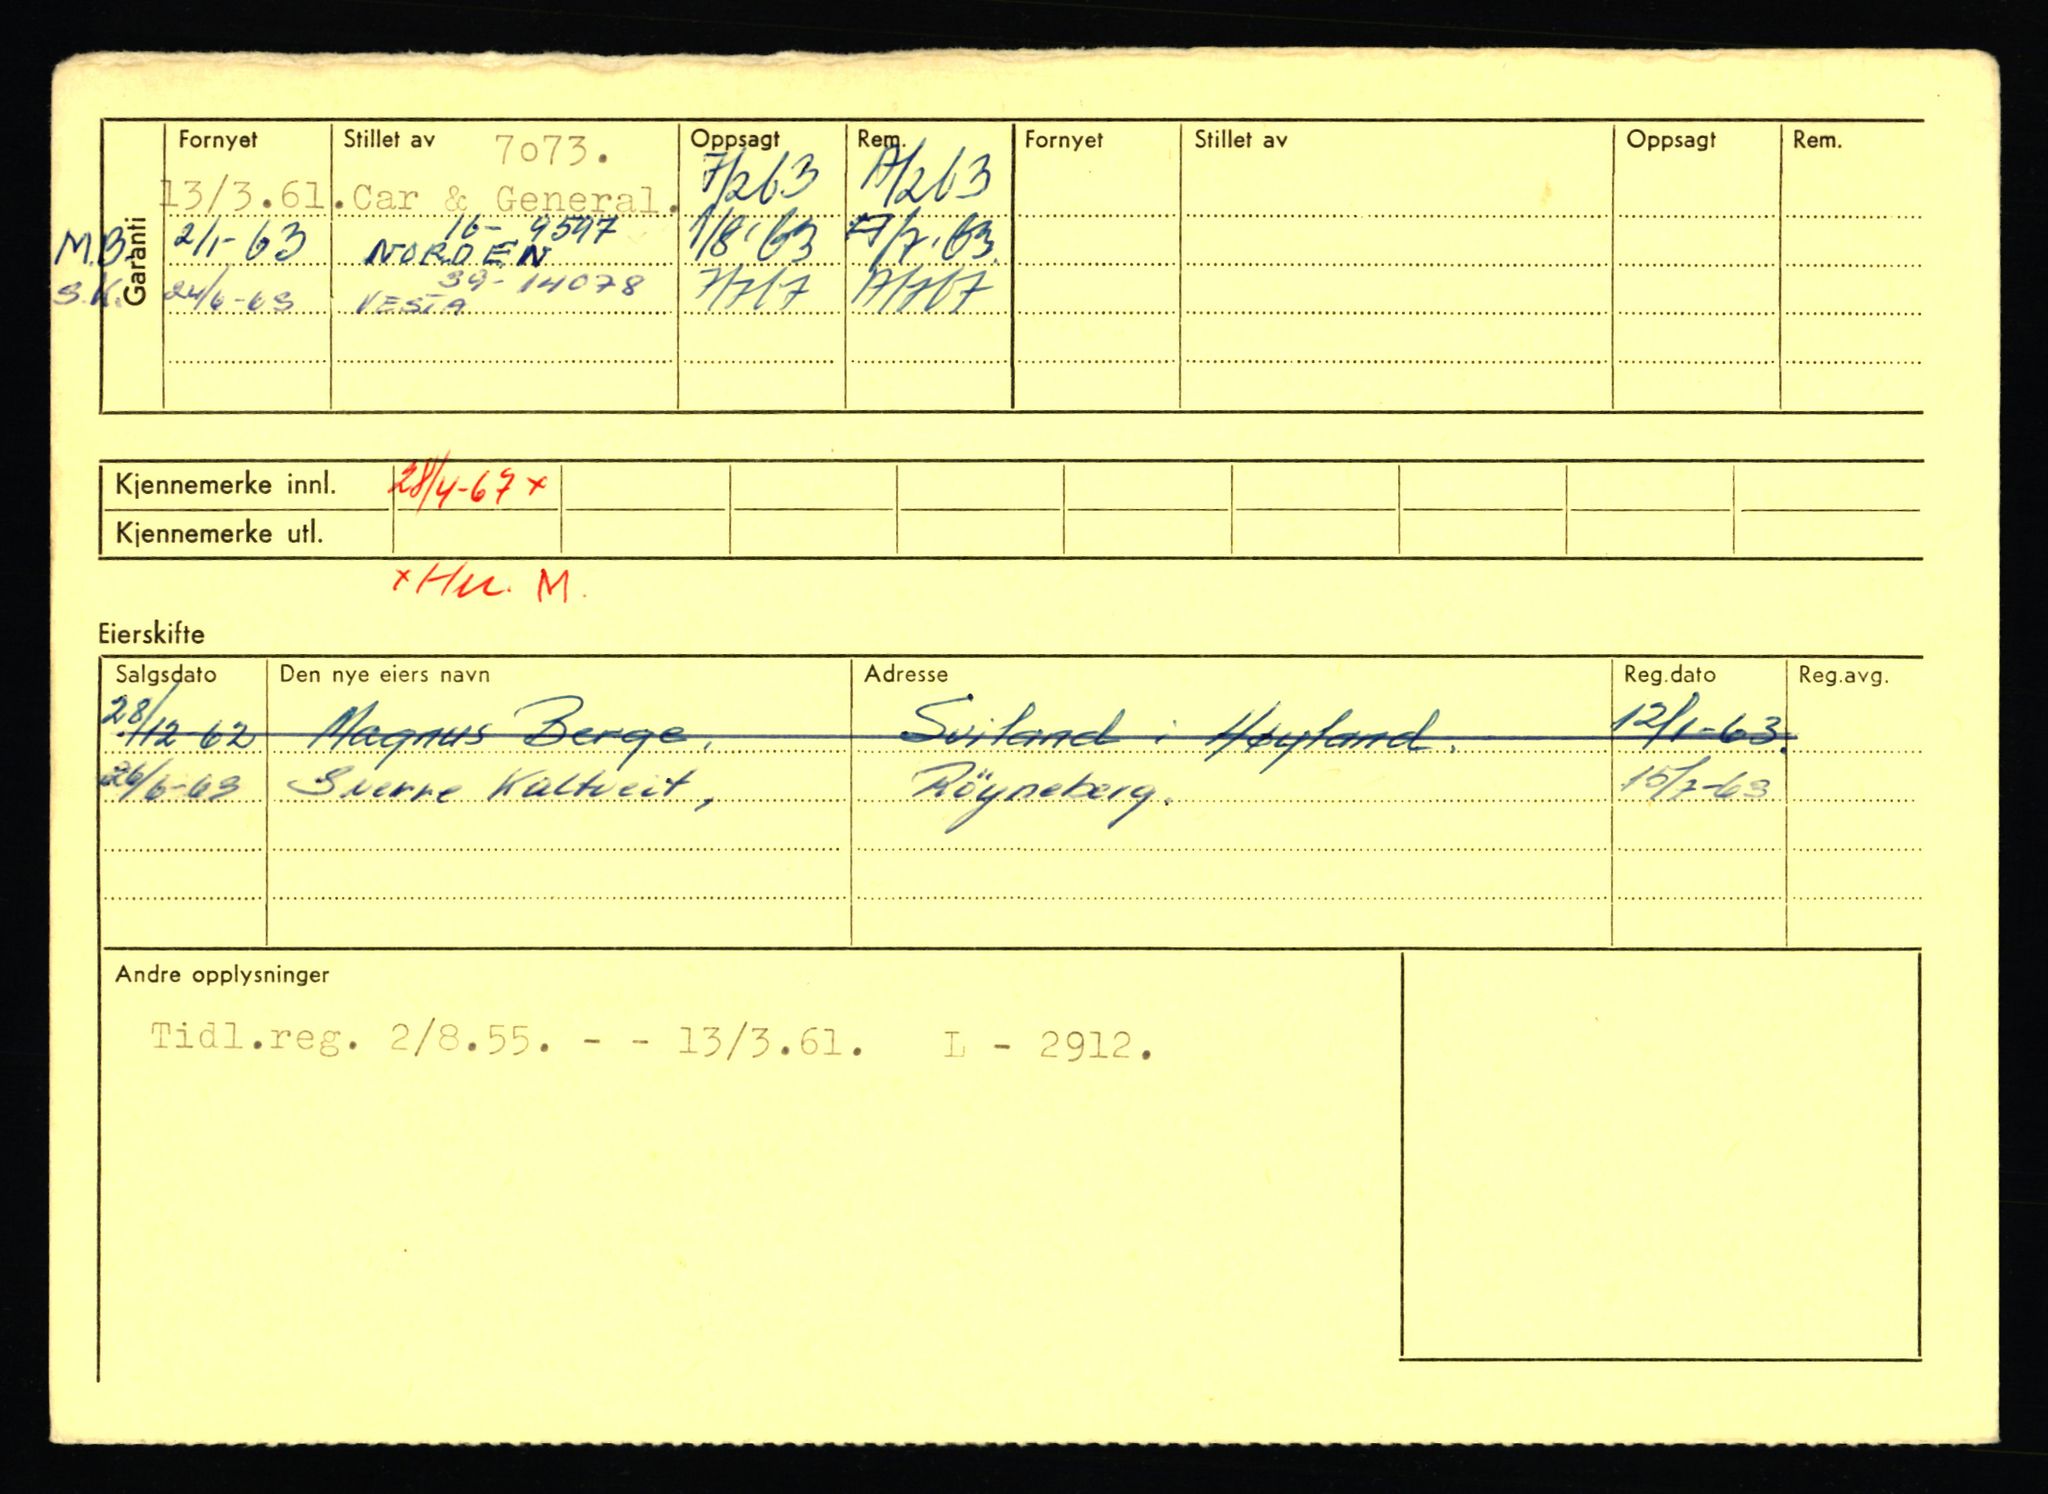 Garanti
Fornyet Stillet av 7073. Oppsagt Rem. Fornyet Stillet av Oppsagt Rem.
13/3.61. Car & General. 7/2 63
M.B. 2/1-63 16-9597 NORDEN 1/8.63
S.K. 24/6-63 39-14078 VESTA 7/7 67
Kjennemerke innl. 28/4-67 x
Kjennemerke utl.
x Hu. M.
Eierskifte
Salgsdato Den nye eiers navn Adresse Reg.dato Reg.avg.
28/12-62 Magnus Berge. Sviland i Høyland. 12/1-63.
26/6-63 Sverre Kaltveit, Röyneberg. 15/7-63
Andre opplysninger
Tidl.reg. 2/8.55. - - 13/3.61. L - 2912.